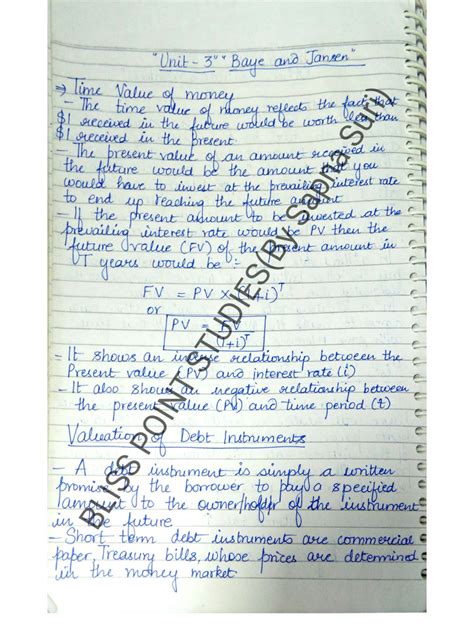 "Unit - 3" "Baye and Jansen"
→ Time Value of money
- The time value of money reflects the fact that
$1 received in the future would be worth less than
$1 received in the present
- The present value of an amount received in
the future would be the amount that you
would have to invest at the prevailing interest rate
to end up reaching the future amount
- If the present amount to be invested at the
prevailing interest rate would be PV then the
future value (FV) of the present amount in
T years would be :-
FV = PV × (1+i)^T
or
PV = FV
(1+i)^T
- It shows an inverse relationship between the
Present value (PV) and interest rate (i)
- It also shows an negative relationship between
the present value (PV) and time period (t)
Valuation of Debt Instruments
- A debt instrument is simply a written
promise by the borrower to pay a specified
amount to the owner/holder of the instrument
in the future
- Short term debt instruments are commercial
paper, Treasury bills, whose prices are determined
in the money market
BLISS POINT STUDIES(By Sapna Suri)